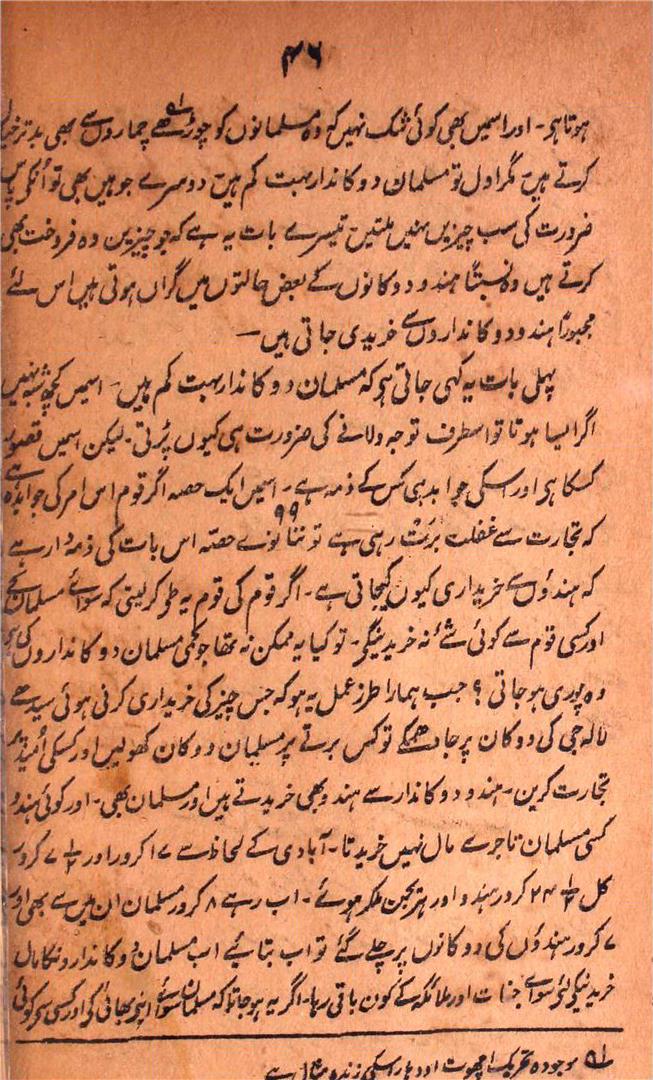 ۴۶
ہوتا ہو۔ اور اسمیں بھی کوئی شک نہیں کہ وہ مسلمانوں کو چوڑھے چماروں سے بھی بدتر خیال
کرتے ہیں مگر اول تو مسلمان دوکاندار بہت کم ہیں دوسرے جو ہیں بھی تو اُنکے پاس
ضرورت کی سب چیزیں نہیں ملتیں تیسرے بات یہ ہے کہ جو چیزیں وہ فروخت بھی
کرتے ہیں وہ نسبتاً ہندو دوکانوں کے بعض حالتوں میں گراں ہوتی ہیں اس لئے
مجبوراً ہندو دوکانداروں سے خریدی جاتی ہیں —
پہلی بات یہ کہی جاتی ہی کہ مسلمان دوکاندار بہت کم ہیں۔ اسمیں کچھ شبہ نہیں
اگر ایسا ہوتا تو اسطرف توجہ ولانے کی ضرورت ہی کیوں پڑتی۔ لیکن اسمیں قصور
کسکا ہی اور اسکی جوابدہی کس کے ذمہ ہے۔ اسمیں ایک حصہ اگر قوم اس امر کی جوابدہ ہے
کہ تجارت سے غفلت برت رہی ہے تو ۹۹ ننانوے حصّہ اس بات کی ذمہ دار ہے
کہ ہندوں سے خریداری کیوں کیجاتی ہے۔ اگر قوم کی قوم یہ طو کر لیتی کہ سوائے مسلمان کے
اور کسی قوم سے کوئی شئے نہ خریدینگی۔ تو کیا یہ ممکن نہ تھا جو کمی مسلمان دوکانداروں کی ہی
وہ پوری ہو جاتی ؟ جب ہمارا طرز عمل یہ ہو کہ جس چیز کی خریداری کرنی ہوئی سیدھے
لالہ جی کی دوکان پر جا دھمکے تو کس برتے پر مسلمان دوکان کھولیں اور کسکی اُمید پر
تجارت کریں۔ ہندو دوکاندار سے ہندو بھی خریدتے ہیں اور مسلمان بھی۔ اور کوئی ہندو
کسی مسلمان تاجر سے مال نہیں خریدتا۔ آبادی کے لحاظ سے ۱۷ کرور اور ۷ ۱/۲ کرور
کل ۲۴ ۱/۲ کرور ہندو اور ہریجن ملکر ہوئے۔ اب رہے ۸ کرور مسلمان ان میں سے بھی اوسط
۷ کرور ہندوں کی دوکانوں پر چلے گئے تو اب بتائیے اب مسلمان دوکاندارونکا مال
خریدنیکو لئے سوائے جنات اور ملائکہ کے کون باقی رہا۔ اگر یہ ہو جاتا کہ مسلمان سوائے اپنے بھائی کو اور کسی سے کوئی
۱ موجودہ تحریک اچھوت اودہار اسکی زندہ مثال ہے